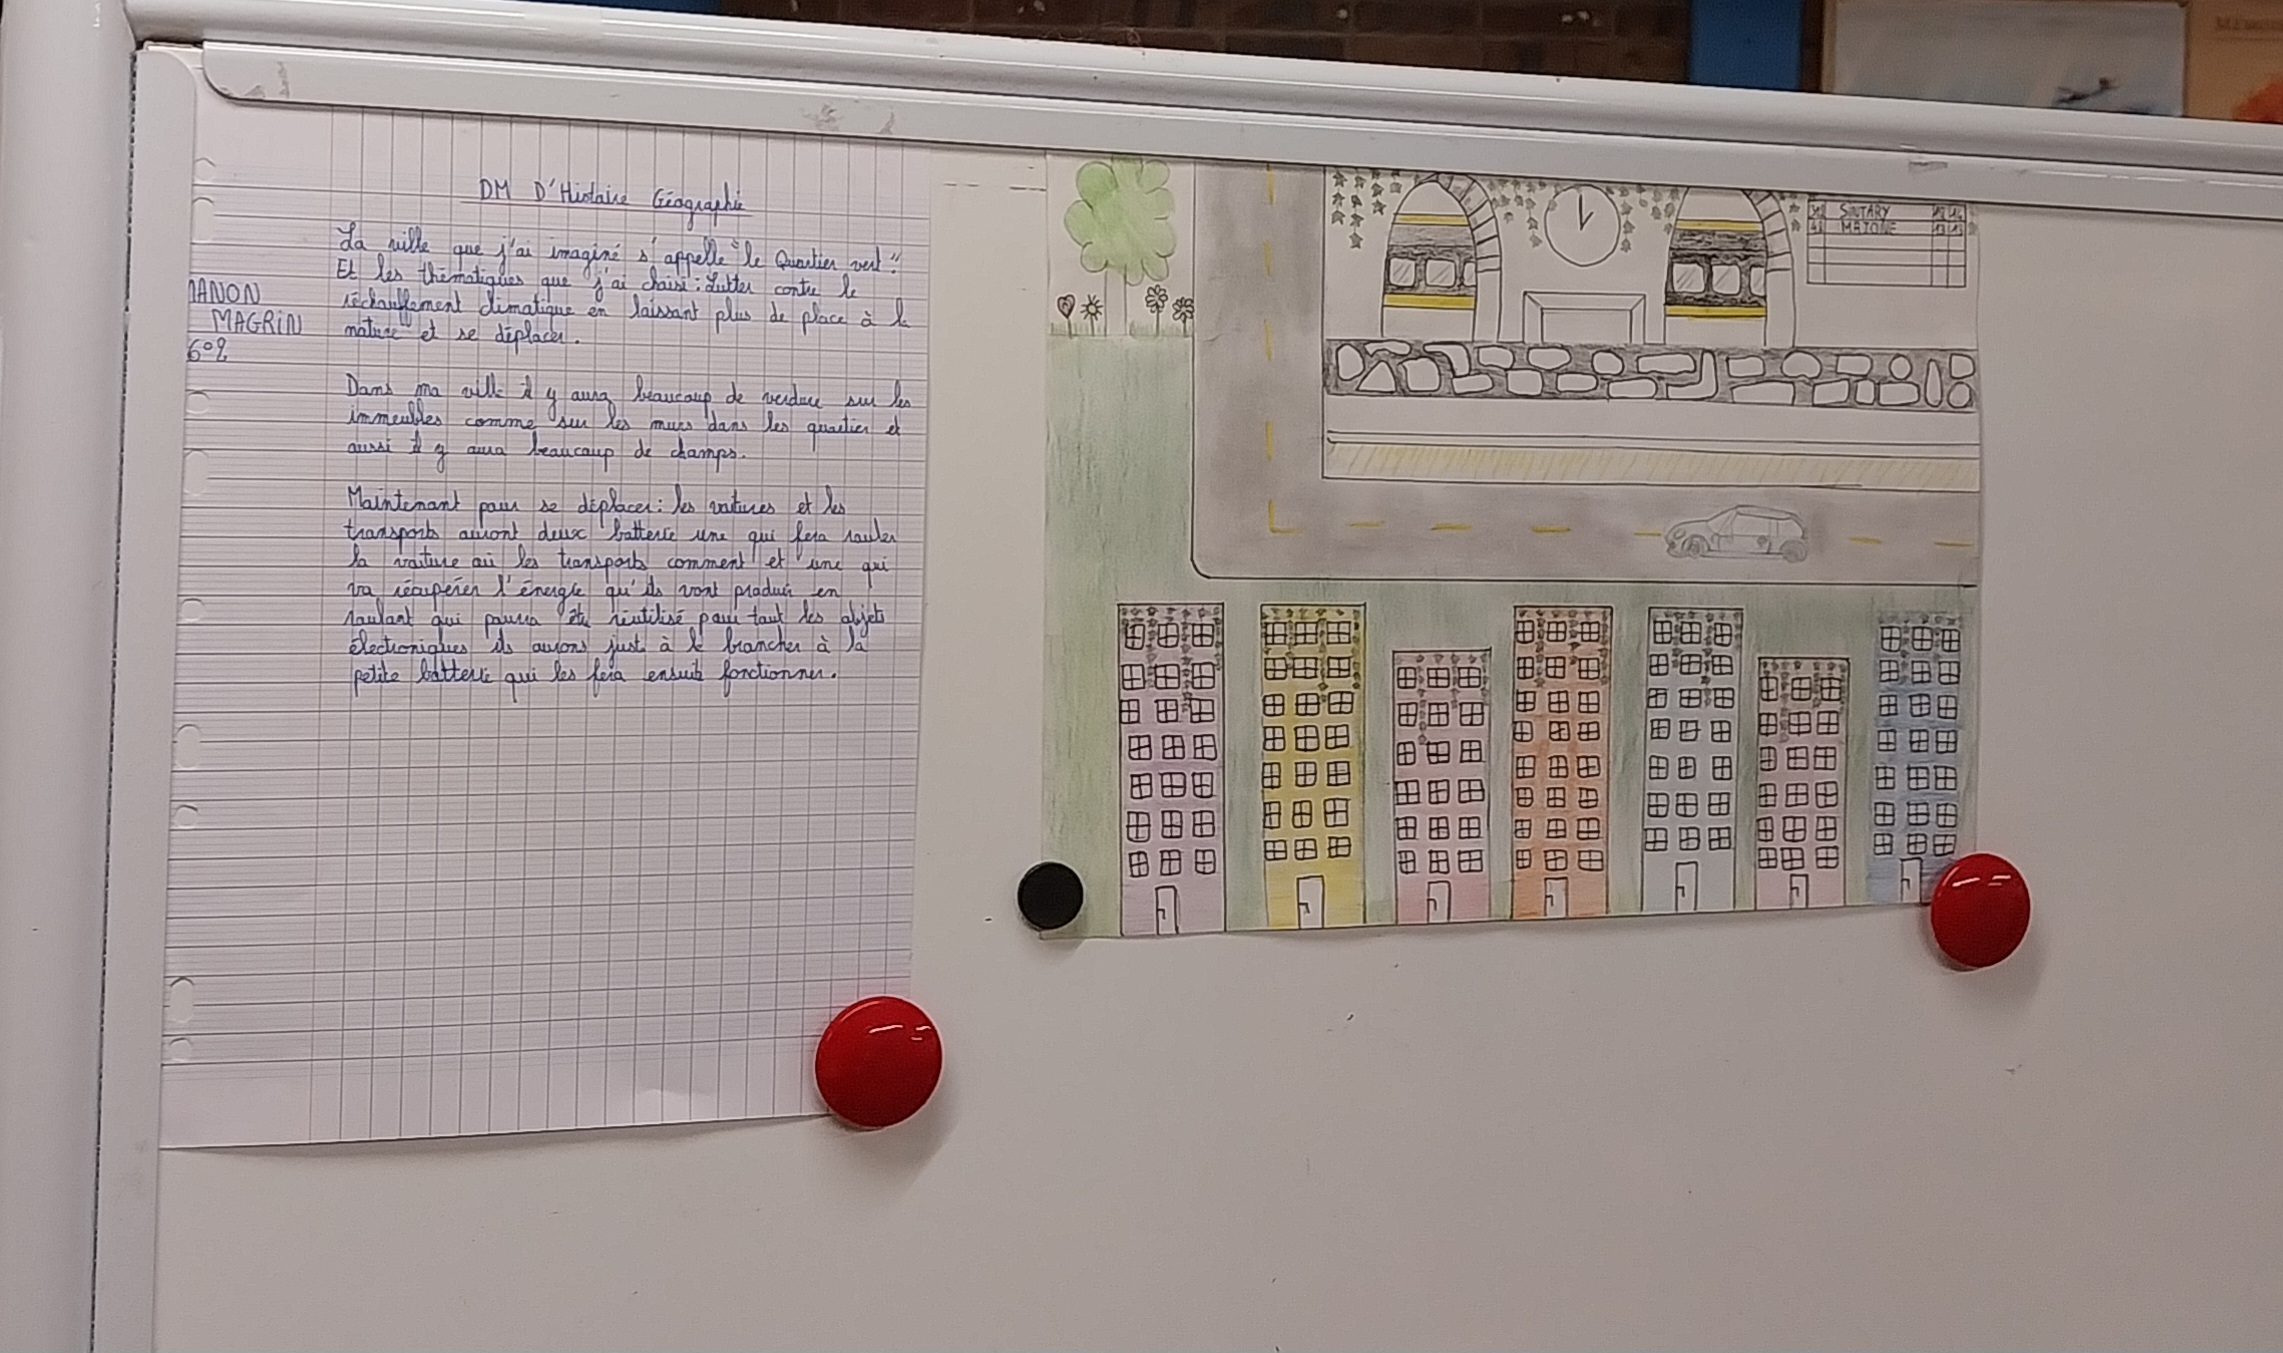 DM D'Histoire Géographie
La ville que j'ai imaginé s'appelle "le Quartier vert".
Et les thématiques que j'ai choisi : Lutter contre le
réchauffement climatique en laissant plus de place à la
nature" et se déplacer.
MANON
MAGRIN
6°2
Dans ma ville il y aura beaucoup de verdure sur les
immeubles comme sur les murs dans les quartier et
aussi il y aura beaucoup de champs.
Maintenant pour se déplacer : les voitures et les
transports auront deux batterie une qui fera rouler
la voiture où les transports comment et une qui
va récupérer l'énergie qu'ils vont produir en
roulant qui pourra être réutilisé pour tout les objets
électroniques ils aurons just à le brancher à la
petite batterie qui les fera ensuite fonctionner.
SINTARY
MAJONE